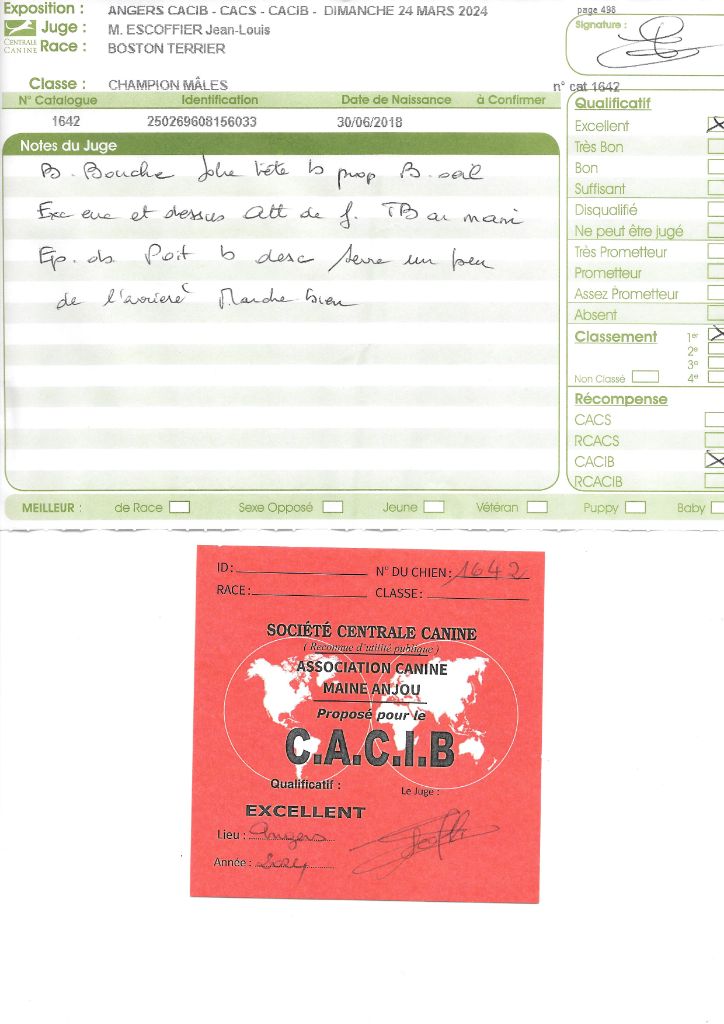 Exposition : ANGERS CACIB - CACS - CACIB - DIMANCHE 24 MARS 2024
page 498
CENTRALE CANINE
Juge : M. ESCOFFIER Jean-Louis
Race : BOSTON TERRIER
Signature :
Classe : CHAMPION MÂLES
n° cat 1642
N° Catalogue Identification Date de Naissance à Confirmer
1642 250269608156033 30/06/2018
Notes du Juge
B. Bouche Jolie tête b prop B. oeil
Exc enc et dessus Att de f. TB au mani
Ep. ds Poit b desc serre un peu
de l'arrière Marche bien
Qualificatif
Excellent
Très Bon
Bon
Suffisant
Disqualifié
Ne peut être jugé
Très Prometteur
Prometteur
Assez Prometteur
Absent
Classement 1er
2e
3e
Non Classé 4e
Récompense
CACS
RCACS
CACIB
RCACIB
MEILLEUR : de Race Sexe Opposé Jeune Vétéran Puppy Baby
ID : N° DU CHIEN : 1642
RACE : CLASSE :
SOCIÉTÉ CENTRALE CANINE
( Reconnue d'utilité publique )
ASSOCIATION CANINE
MAINE ANJOU
Proposé pour le
C.A.C.I.B
Qualificatif : Le Juge :
EXCELLENT
Lieu : Angers
Année : 2024